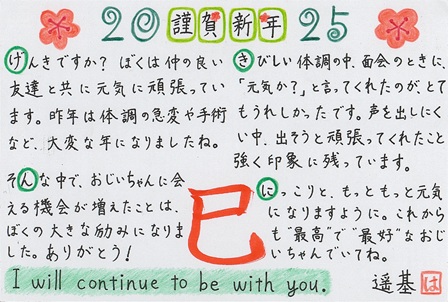 20 謹賀新年 25
げんきですか？ぼくは仲の良い
友達と共に元気に頑張ってい
ます。昨年は体調の急変や手術
など、大変な年になりましたね。
きびしい体調の中、面会のときに、
「元気か？」と言ってくれたのが、とて
もうれしかったです。声を出しにく
い中、出そうと頑張ってくれたこと
強く印象に残っています。
そんな中で、おじいちゃんに会
える機会が増えたことは、
ぼくの大きな励みになりま
した。ありがとう！
巳
にっこりと、もっともっと元気
になりますように。これから
も"最高"で"最好"なおじ
いちゃんでいてね。
I will continue to be with you.
遥基 は